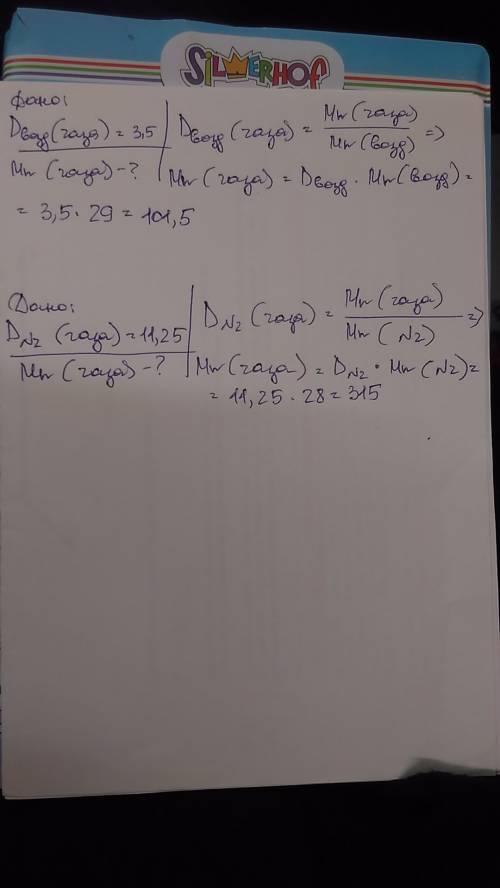 SILWERHOF
Дано:
Dвозд (газа) = 3,5
Mr (газа) - ?
Dвозд (газа) = Mr (газа) / Mr (возд) =>
Mr (газа) = Dвозд · Mr (возд) =
= 3,5 · 29 = 101,5
Дано:
DN2 (газа) = 11,25
Mr (газа) - ?
DN2 (газа) = Mr (газа) / Mr (N2) =>
Mr (газа) = DN2 · Mr (N2) =
= 11,25 · 28 = 315